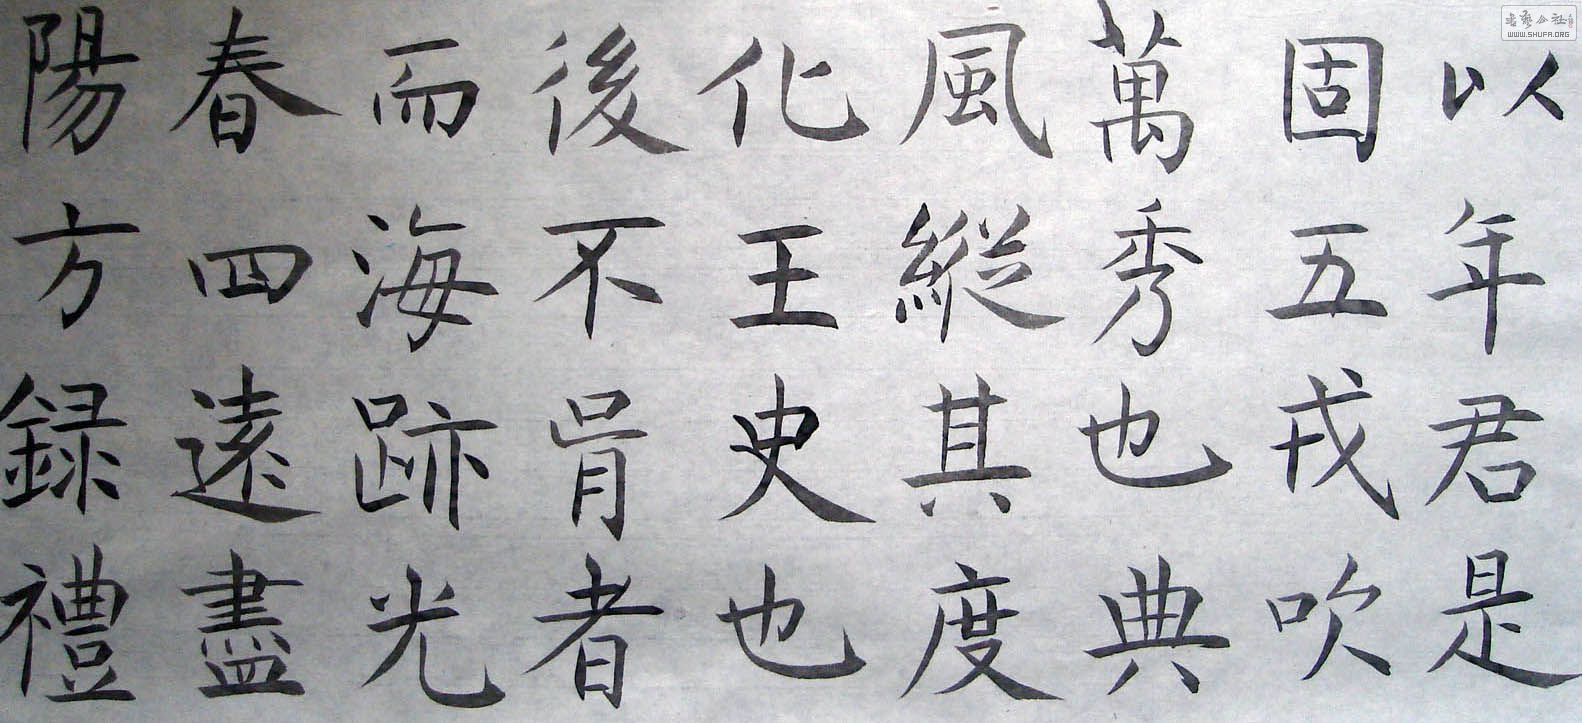 以年君是
固五戎吹
萬秀也典
風縱其度
化王史也
後不肯者
而海跡光
春四遠盡
陽方録禮
書藝公社
WWW.SHUFA.ORG